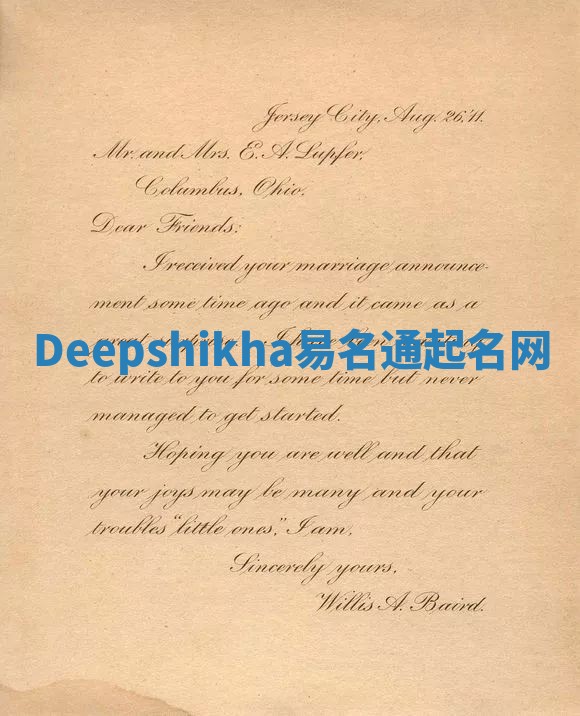 Jersey City, Aug. 26,'11.
Mr. and Mrs. E. A. Lupfer,
Columbus, Ohio.
Dear Friends:
I received your marriage announce-
ment some time ago and it came as a
great surprise. I have
Deepshikha易名通起名网
to write to you for some time but never
managed to get started.
Hoping you are well and that
your joys may be many and your
troubles "little ones," I am,
Sincerely yours,
Willis A. Baird.